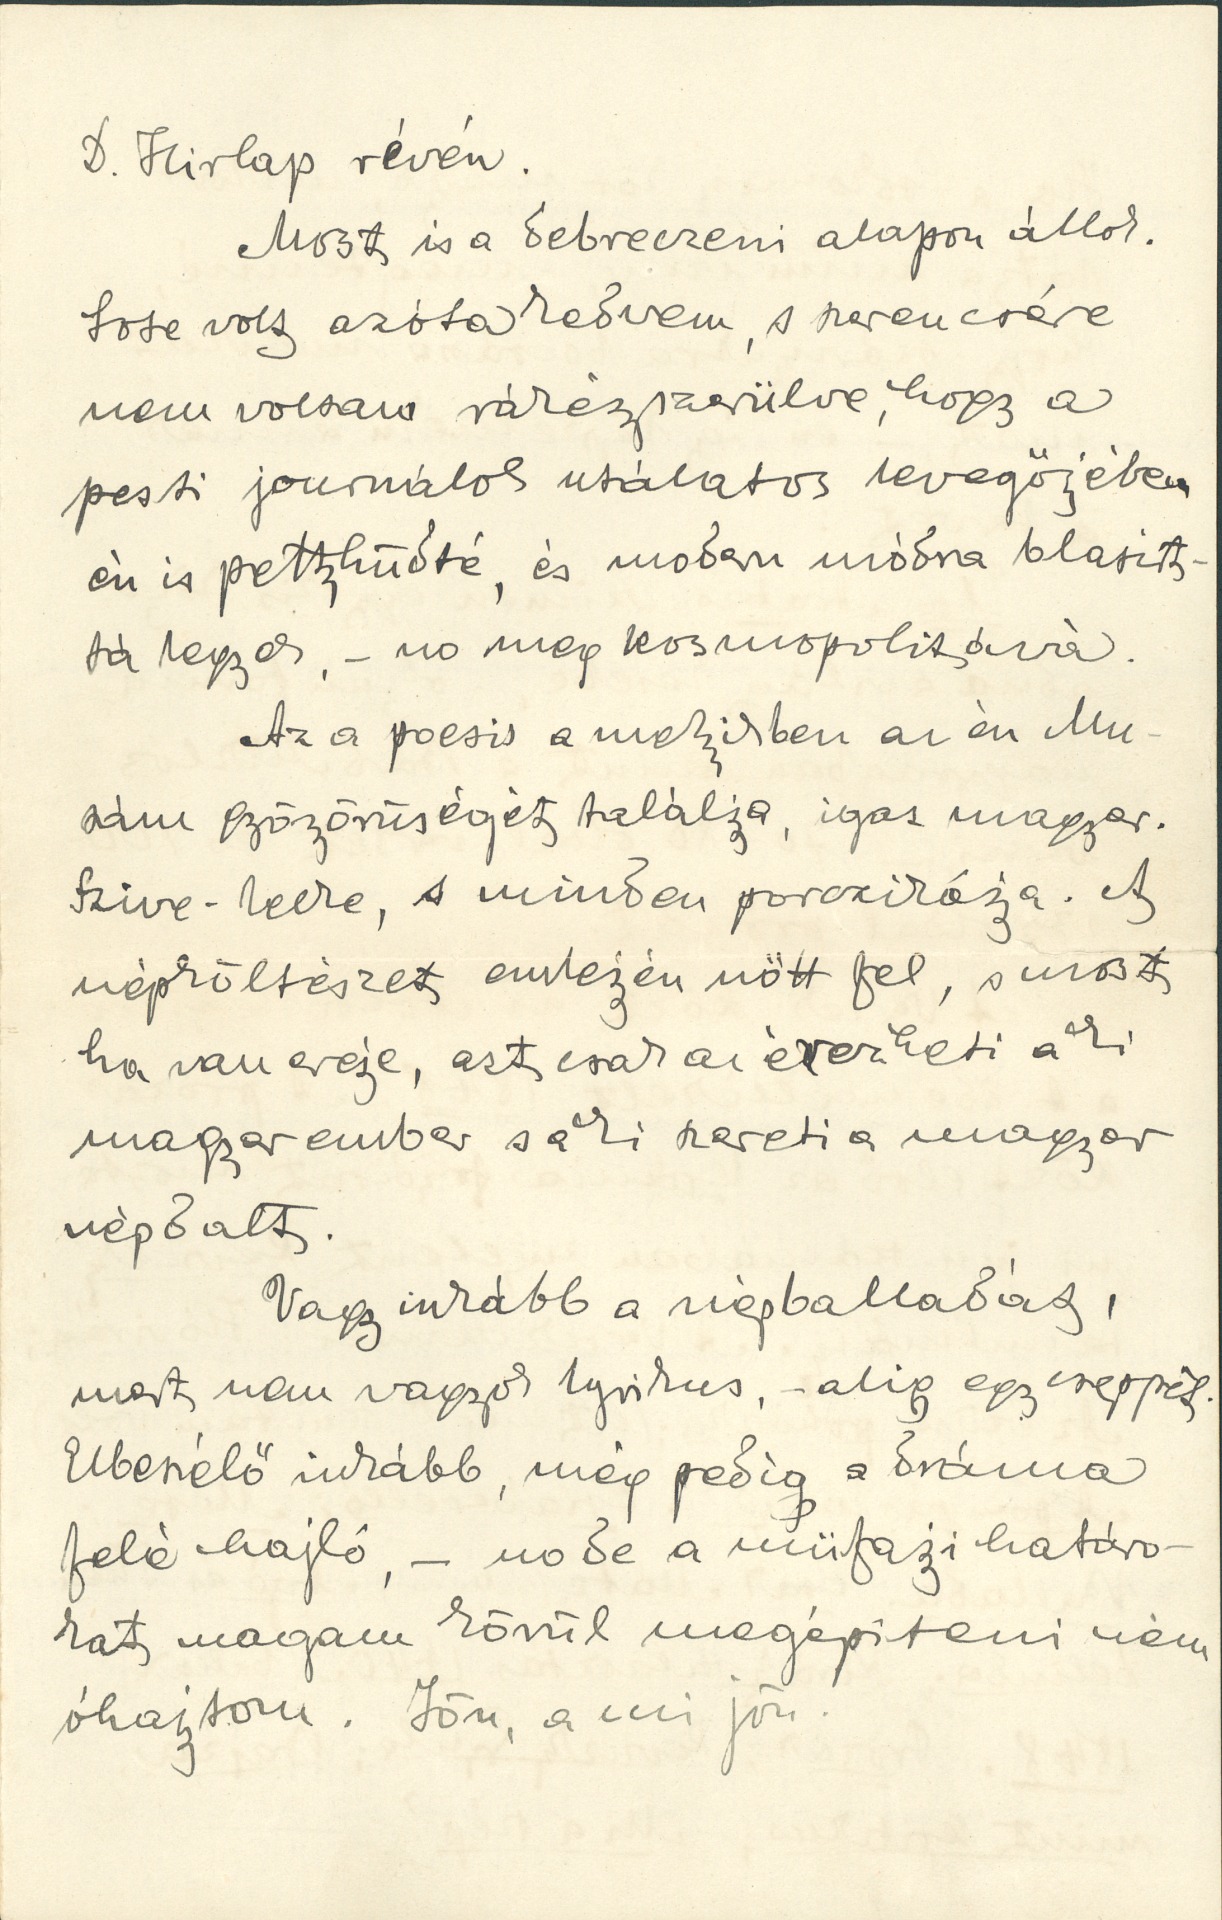 D. Hirlap révén.
Most is a debreczeni alapon állok.
Sose volt azóta kedvem, s szerencsére
nem voltam rákényszerülve, hogy a
pesti journálok utálatos levegőjében
én is petyhüdté, és modern módra blasirt-
tá legyek, – no meg kosmopolitává.
Az a poesis a melyikben az én Mu-
zsám gyönyörüségét találja, igaz magyar.
Szive-lelke, s minden porczikája. A
népköltészet emlején nőtt fel, s most
ha van ereje, azt csak az érezheti a ki
magyar ember s a ki szereti a magyar
népdalt.
Vagy inkább a népballadát,
mert nem vagyok lyrikus, – alig egy cseppet.
Elbeszélő inkább, még pedig a dráma
felé hajló, – no de a müfaji határo-
kat magam körül megépiteni nem
óhajtom. Jön, a mi jön.